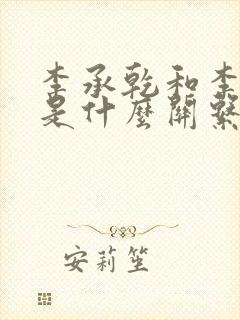 李承乾和李
是什麼關係
安莉笙